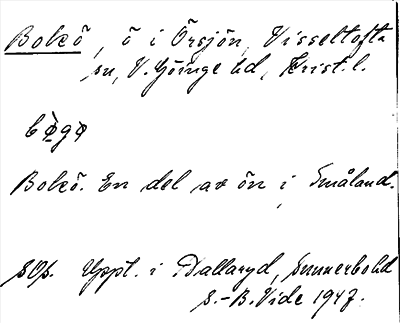 Bokö, ö i Örsjön, Visseltofta
sn, V. Göinge hd, Krist. l.
Bokö. En del av ön i Småland.
Uppt. i Hallaryd, Sunnerbo hd
S.-B. Vide 1947.